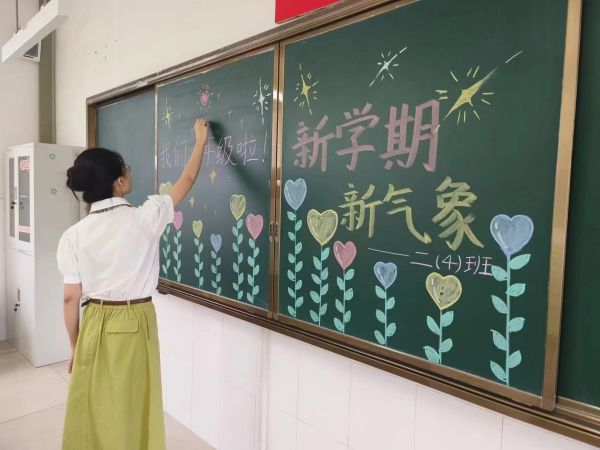 我们 年级啦！
新学期
新气象
——二(4)班